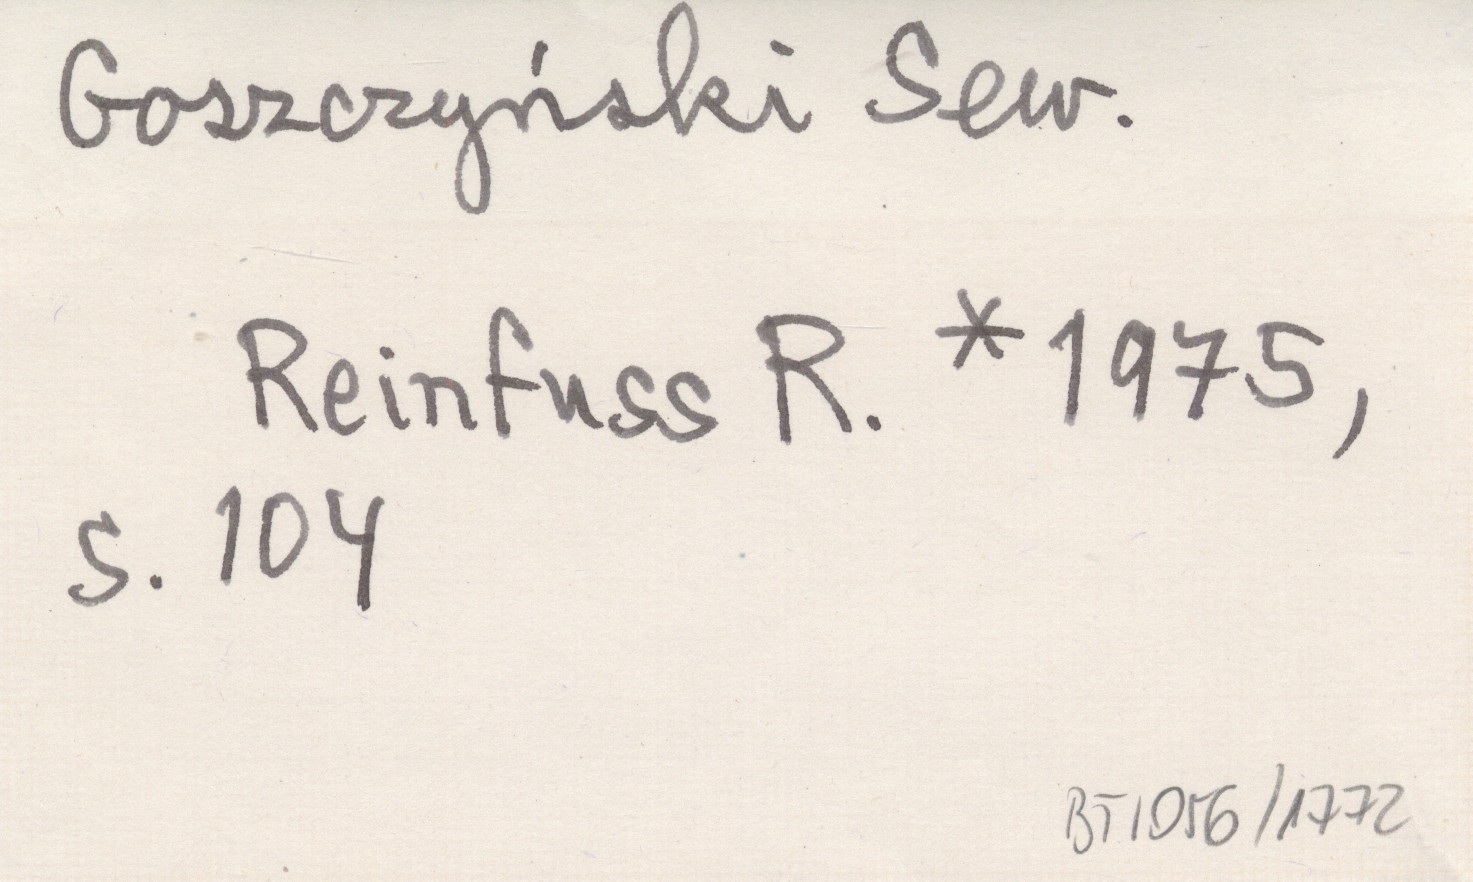 Goszczyński Sew.
Reinfuss R. *1975,
s. 104
BT1056/1772